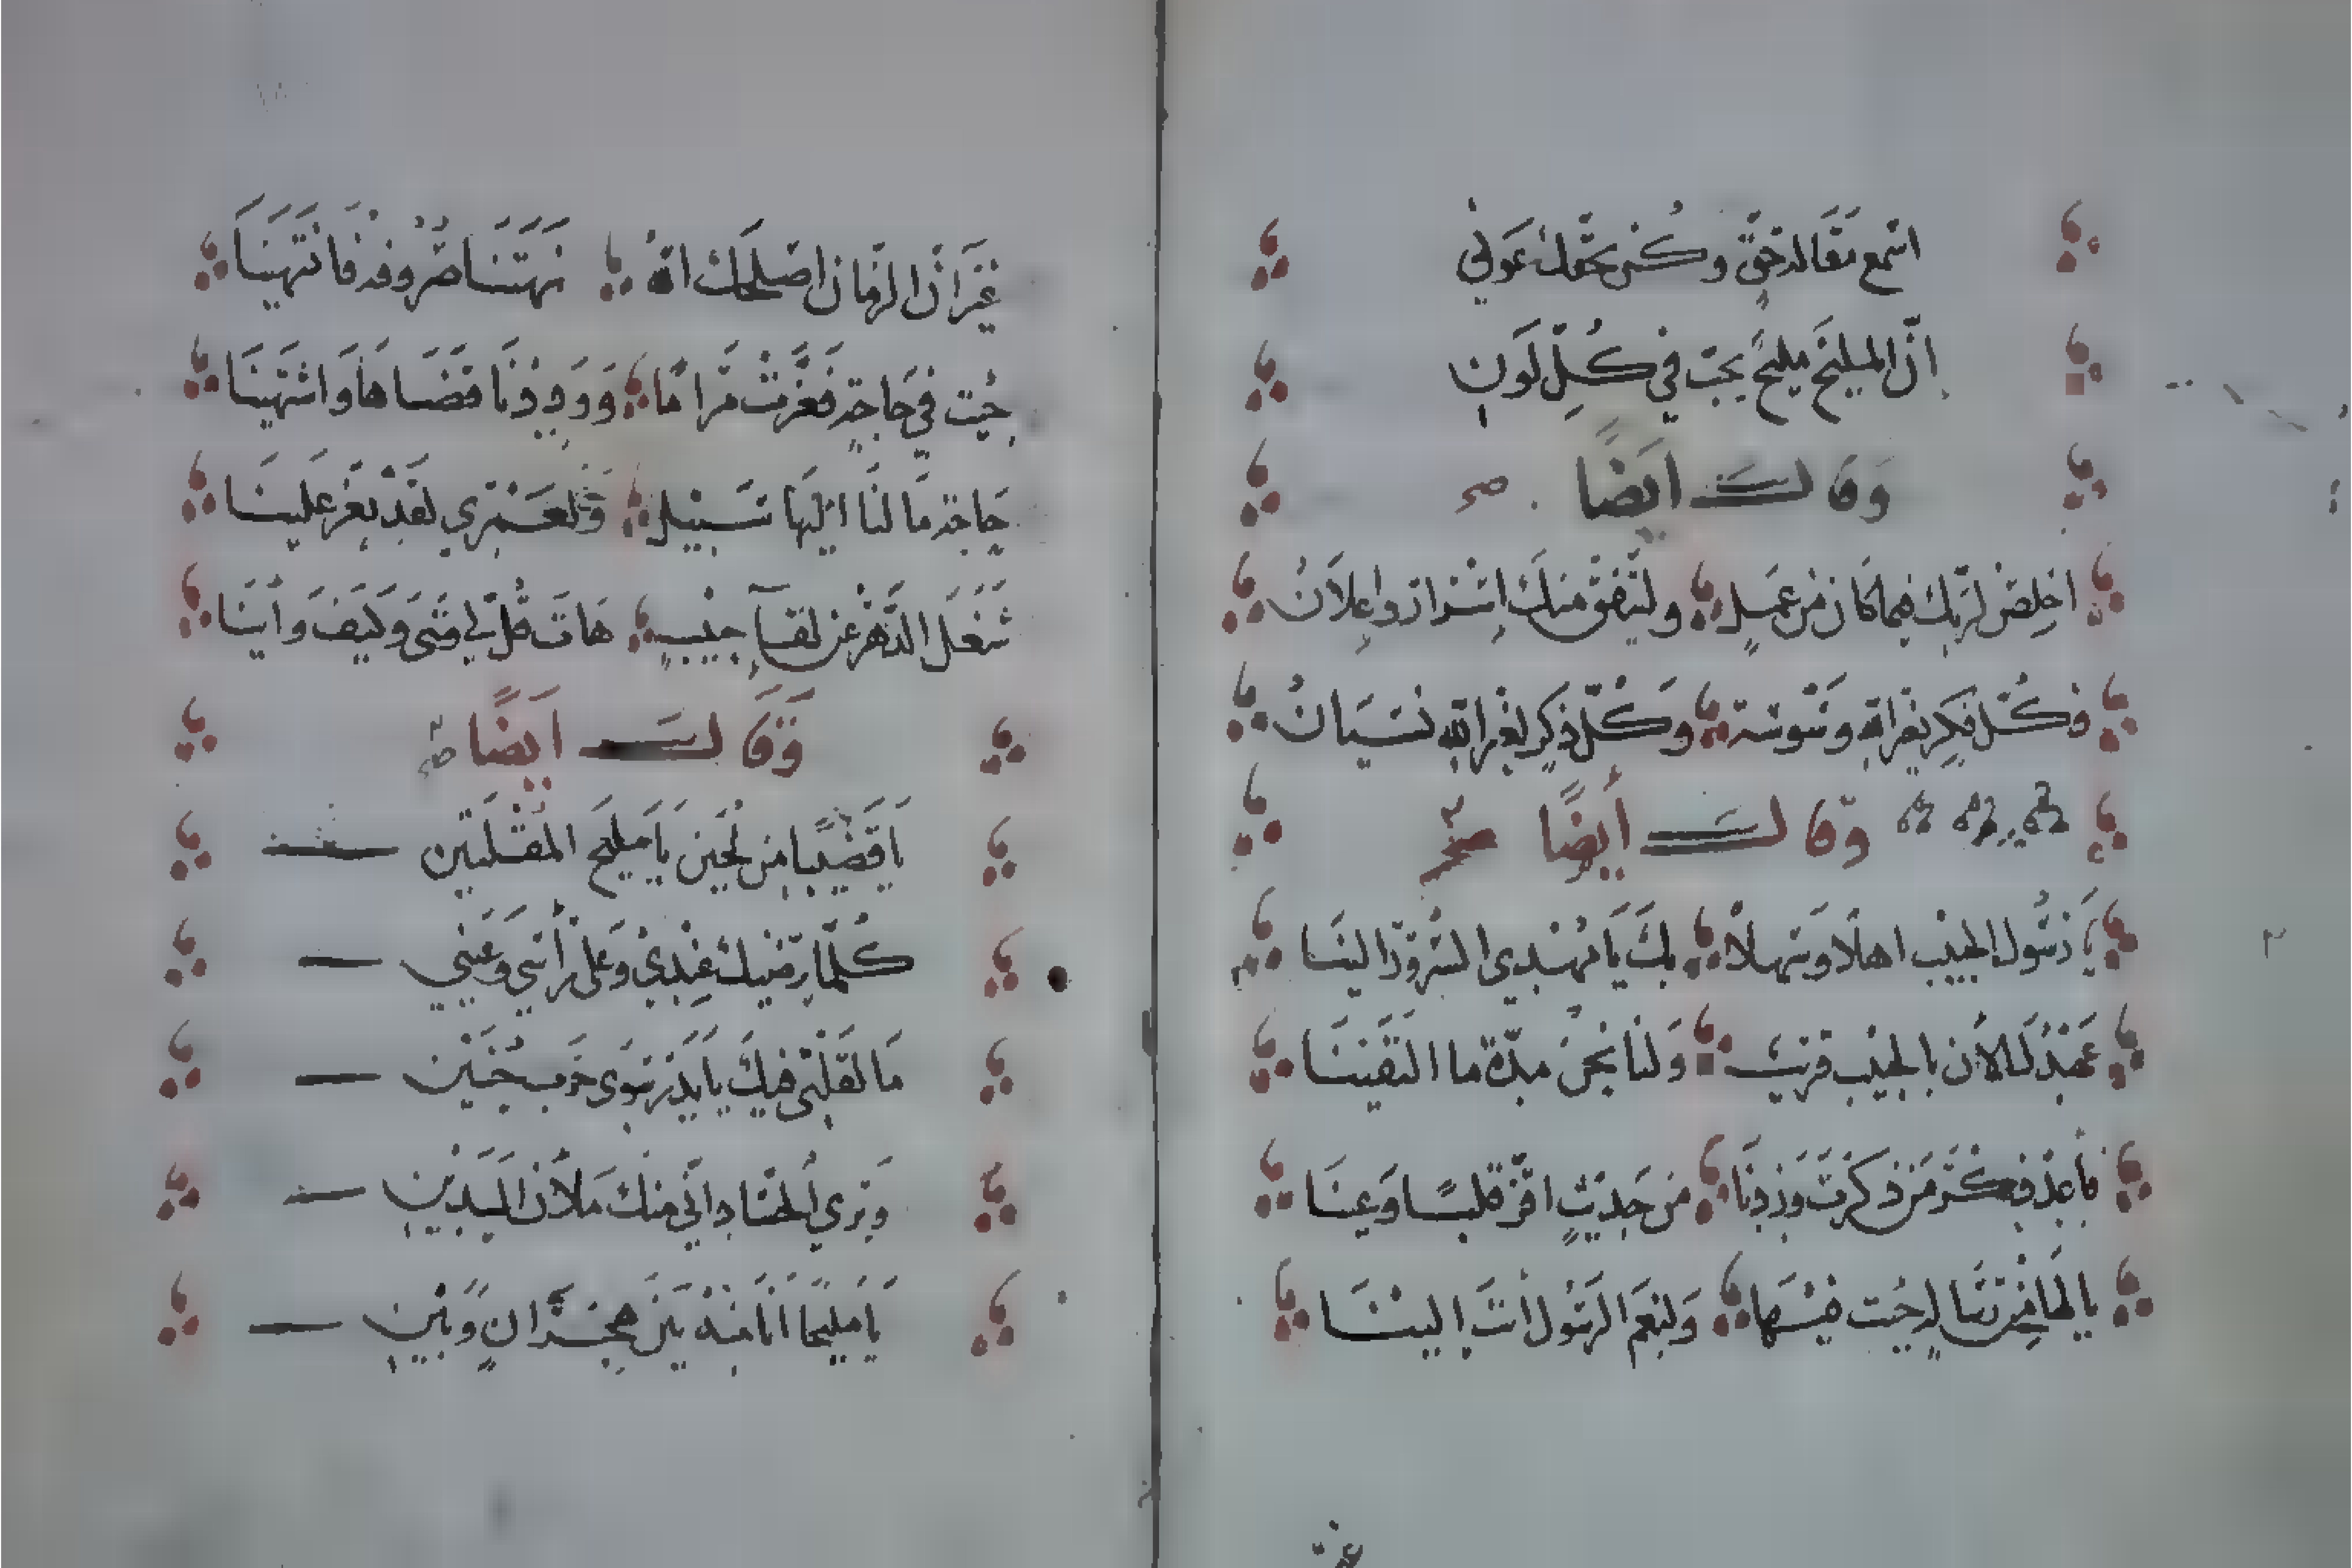 اسمع مقالة حق وكن بحقك عوني
ان المليح مليح يحب في كل لون
وقال ايضا
اخلص لربك فيما كان من عمل وليتفق منك اسرار واعلان
فكل فكر لغير الله وسوسة وكل ذكر لغير الله نسيان
وقال أيضا
يا رسول الحبيب اهلا وسهلا بك يا مهدي السرور الينا
عهدك الان بالحبيب قريب ولنا نحن مدة ما التقينا
فاعد ذكر من ذكرت وزدنا من حديث اقر قلبا وعينا
يا لها من رسالة جيت فيها ولنعم الرسول انت الينا
غير ان الزمان اصلحك الله نهتنا صروفه فانتهينا
جيت في حاجة فعزت مراما ووددنا قضاها واشتهينا
حاجة ما لنا اليها سبيل ولعمري لقد يعز علينا
شغل الدهر عن لقآ حبيب هات قل لي متى وكيف واينا
وقال ايضا
يا قضيبا من لجين يا مليح المقلتين
كلما يرضيك عندي وعلى رأسي وعيني
ما لقلبي فيك يا بدر سوى خف حنين
وترى الحساد اني منك ملآن اليدين
يا مليحا انا منه بين هجران وبين